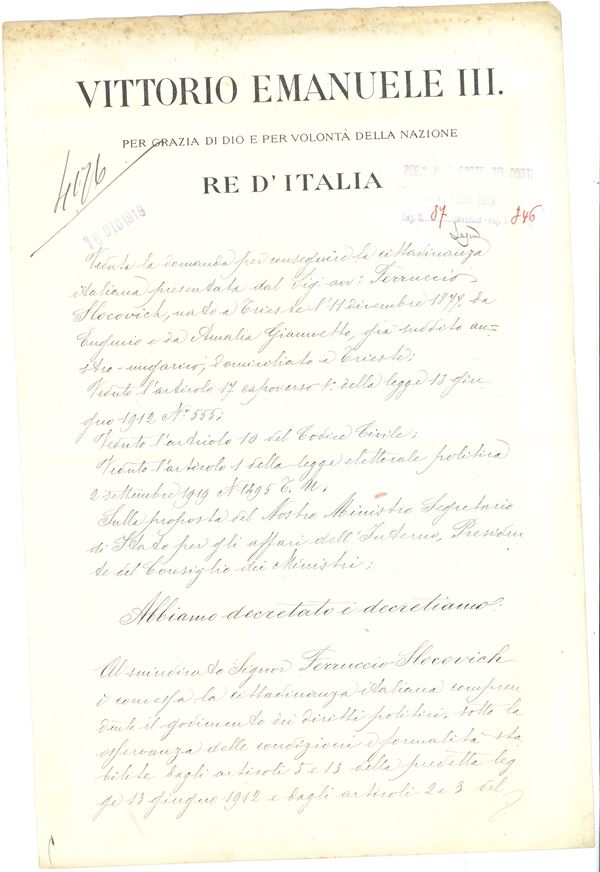 VITTORIO EMANUELE III.
PER GRAZIA DI DIO E PER VOLONTÀ DELLA NAZIONE
RE D'ITALIA
4176
REG. ALLA CORTE DEI CONTI
87 346
Veduta la domanda per conseguire la cittadinanza
italiana presentata dal Sig. avv. Ferruccio
Slocovich, nato a Trieste l'11 dicembre 1877, da
Eugenio e da Amalia Giannetto, già suddito au=
stro-ungarico, domiciliato a Trieste;
Veduto l'articolo 17 capoverso 1° della legge 13 giu
gno 1912 N° 555;
Veduto l'articolo 10 del Codice Civile;
Veduto l'articolo 1 della legge elettorale politica
2 settembre 1919 N 1495 T. U.
Sulla proposta del Nostro Ministro Segretario
di Stato per gli affari dell'Interno, Presiden
te del Consiglio dei Ministri;
Abbiamo decretato e decretiamo:
Al suindicato Signor Ferruccio Slocovich
è concessa la cittadinanza italiana compren
dente il godimento dei diritti politici, sotto la
osservanza delle condizioni e formalità sta
bilite dagli articoli 5 e 13 della predetta leg
ge 13 giugno 1912 e dagli articoli 2 e 3 del